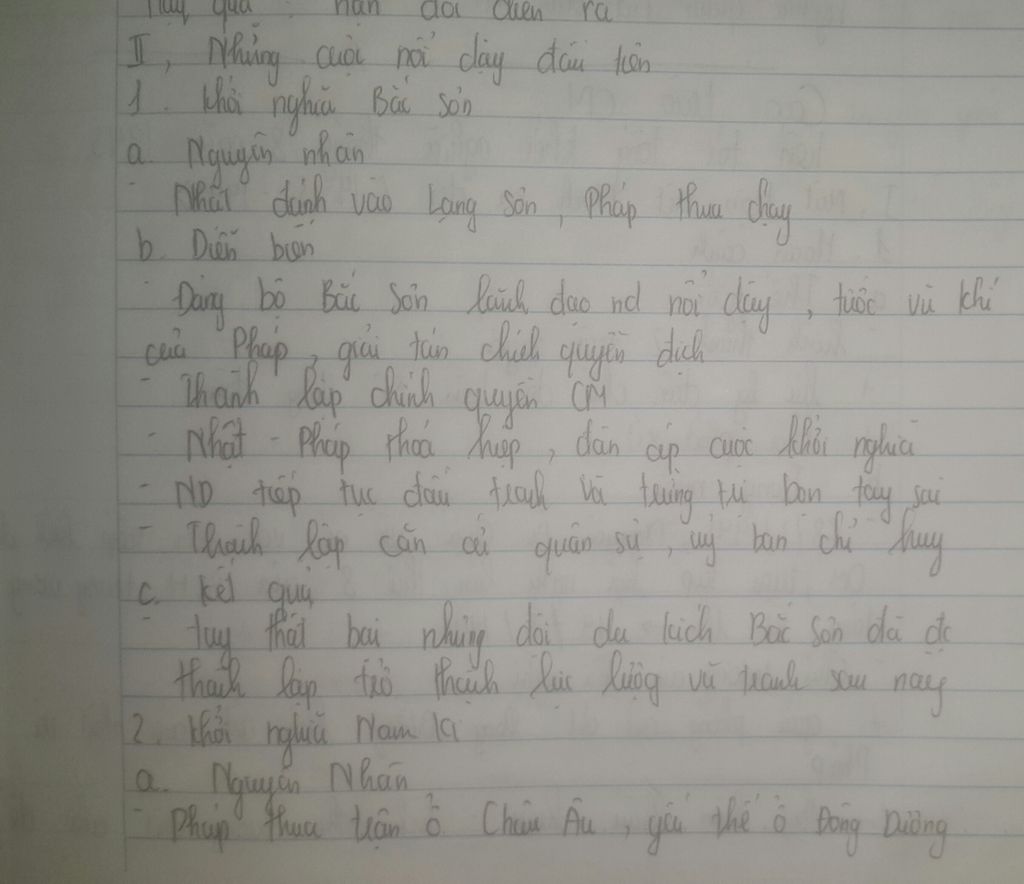 quả nạn đói diễn ra
II, Những cuộc nổi dậy đấu tiên
1. Khởi nghĩa Bắc Sơn
a. Nguyên nhân
- Nhật đánh vào Lạng Sơn, Pháp thua chạy
b. Diễn biến
- Đảng bộ Bắc Sơn lãnh đạo nd nổi dậy, tước vũ khí
của Pháp, giải tán chính quyền địch
- Thành lập chính quyền CM
- Nhật - Pháp thoả hiệp, đàn áp cuộc khởi nghĩa
- ND tiếp tục đấu tranh và trừng trị bọn tay sai
- Thành lập căn cứ quân sự, uỷ ban chỉ huy
c. Kết quả
- Tuy thất bại nhưng đội du kích Bắc Sơn đã đc
thành lập trở thành lực lượng vũ trang sau này
2. Khởi nghĩa Nam Kì
a. Nguyên Nhân
- Pháp thua trận ở Châu Âu, yếu thế ở Đông Dương